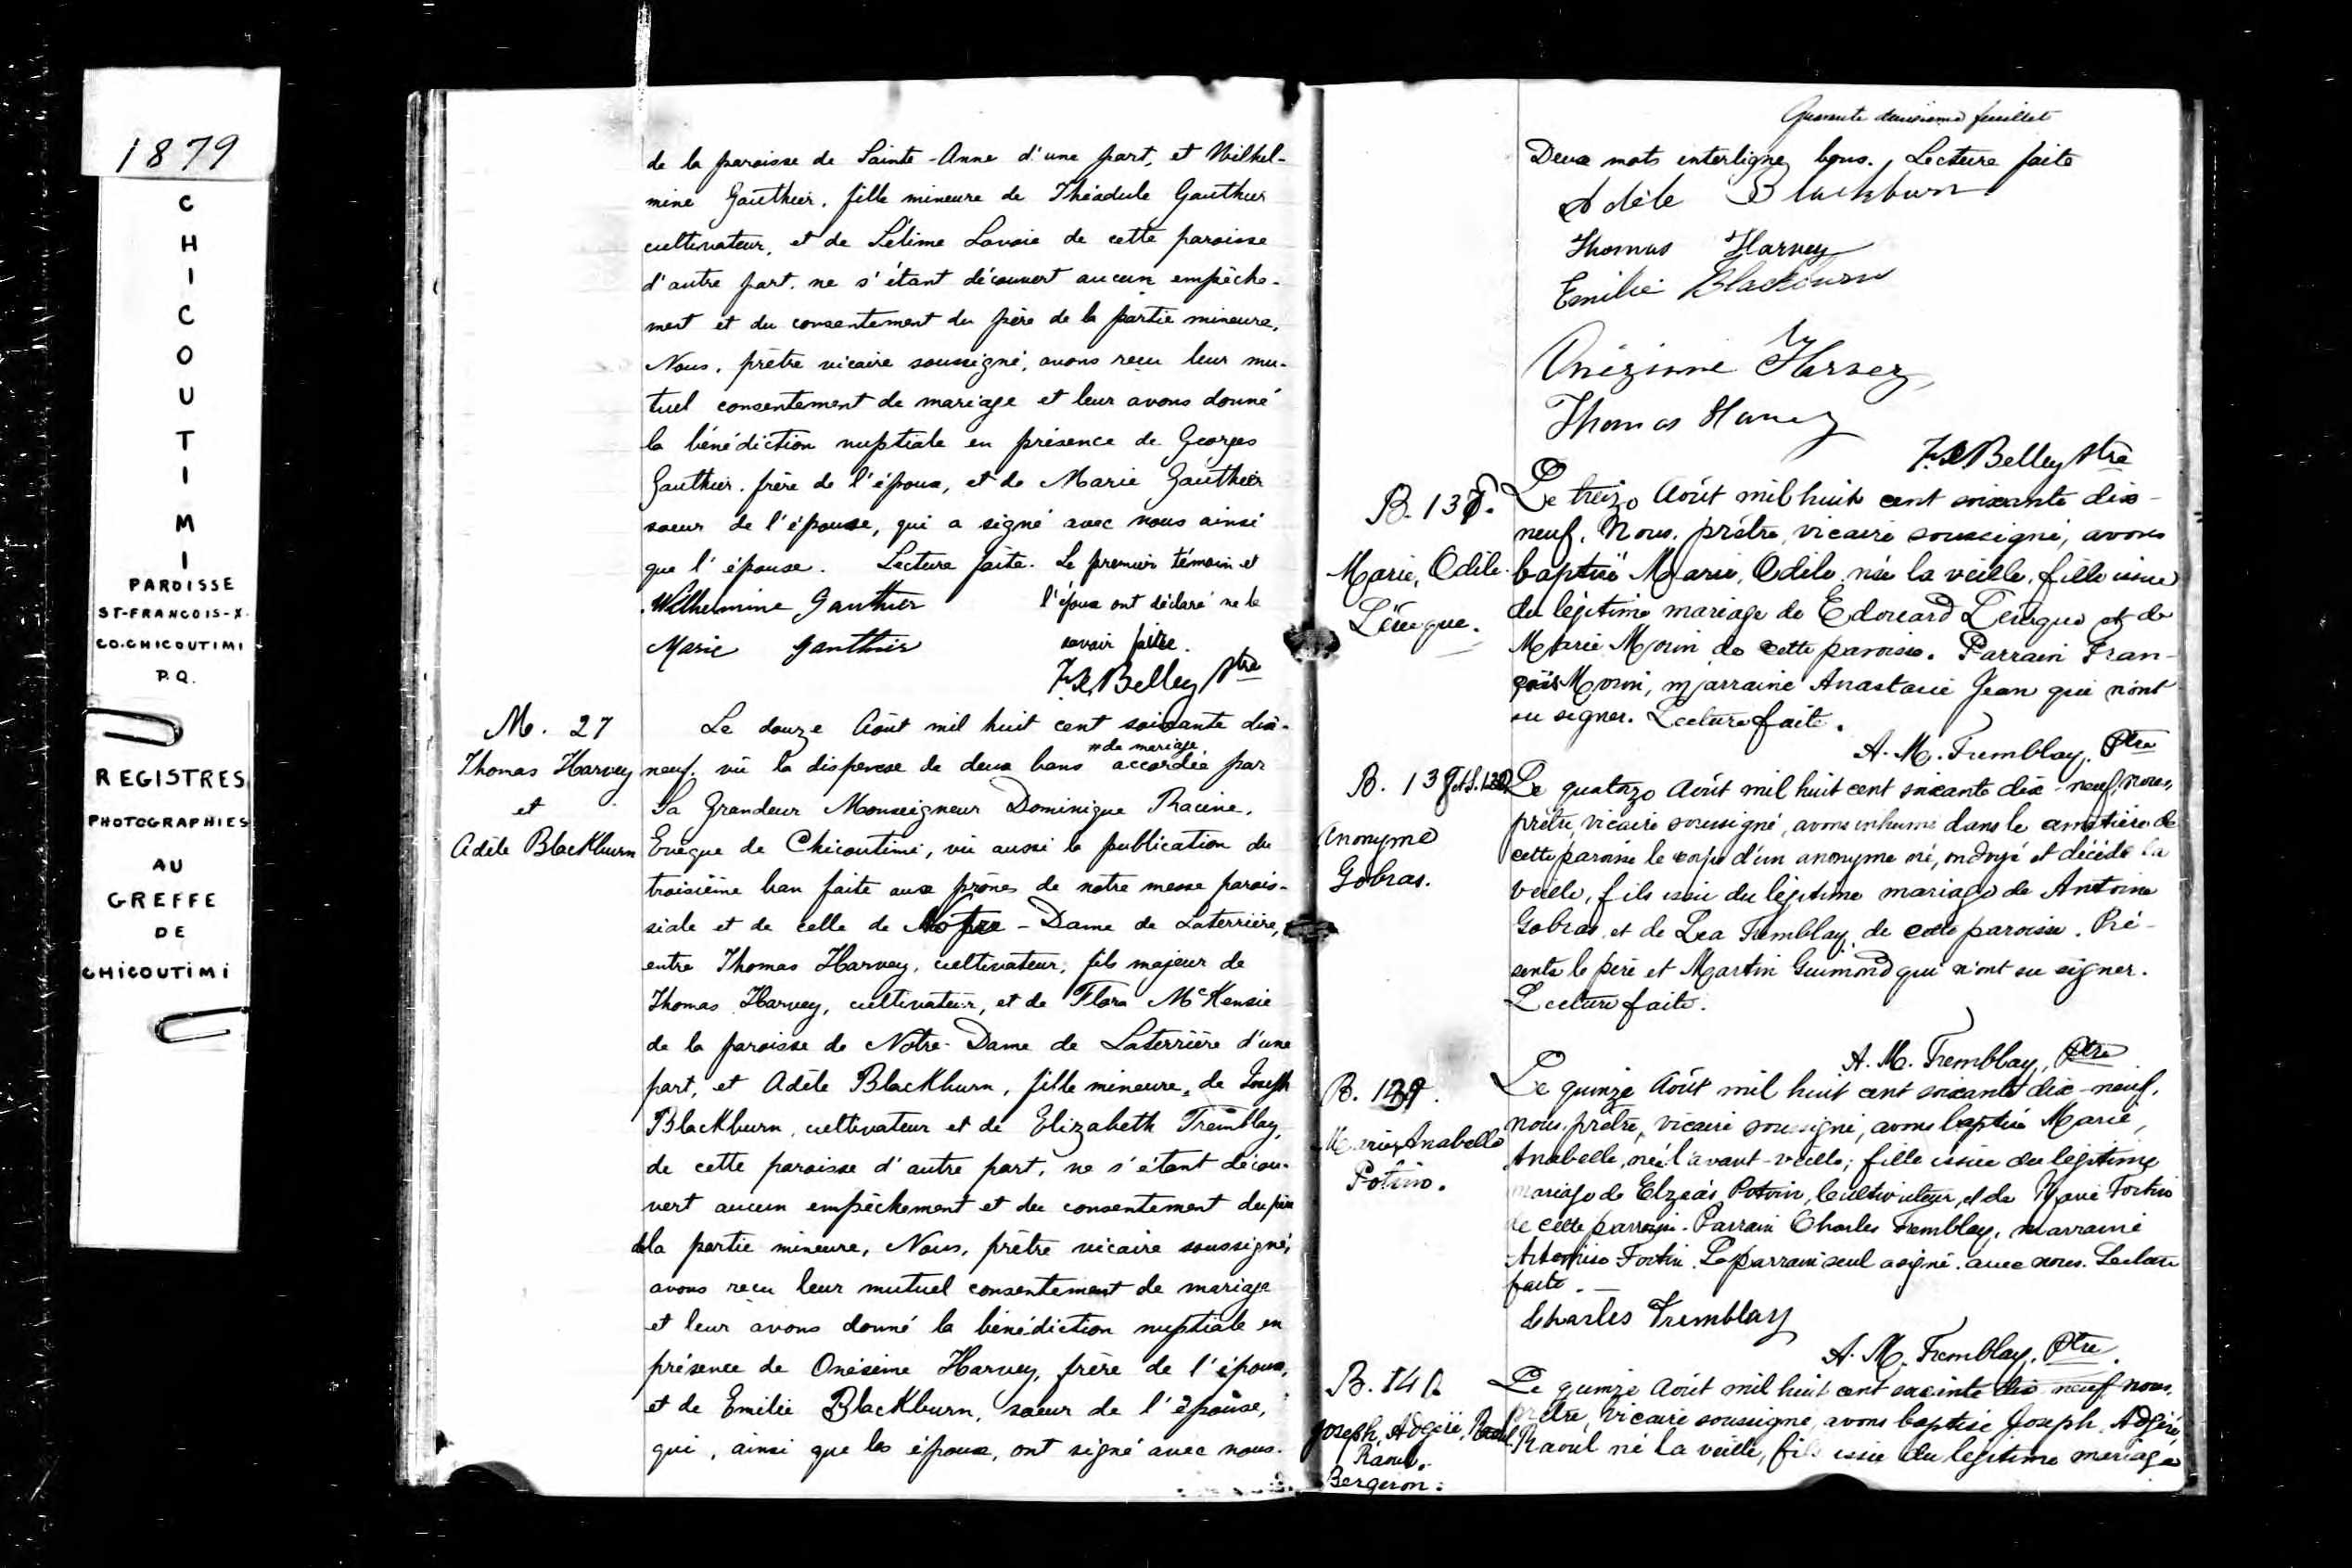 1879
CHICOUTIMI
PAROISSE
ST-FRANCOIS-X.
CO.CHICOUTIMI
P.Q.
REGISTRES
PHOTOGRAPHIES
AU
GREFFE
DE
CHICOUTIMI
de la paroisse de Sainte-Anne d'une part, et Wilhel-
mine Gauthier, fille mineure de Théodule Gauthier
cultivateur, et de Lavoie de cette paroisse
d'autre part. ne s'étant découvert aucun empêche-
ment et du consentement du père de la partie mineure,
Nous, prêtre vicaire soussigné, avons reçu leur mu-
tuel consentement de mariage et leur avons donné
la bénédiction nuptiale en présence de Georges
Gauthier. frère de l'époux, et de Marie Gauthier
soeur de l'épouse, qui a signé avec nous ainsi
que l'épouse. Lecture faite. Le premier témoin et
Wilhelmine Gauthier l'époux ont déclaré ne le
Marie Gauthier savoir faire.
Belley Ptre
M. 27
Thomas Harvey
et
Adèle Blackburn
Le douze Août mil huit cent soixante dix-
de mariage
neuf. vû la dispense de deux bans accordée par
Sa Grandeur Monseigneur Dominique Racine,
Evêque de Chicoutimi, vû aussi la publication du
troisième ban faite aux prônes de notre messe parois-
siale et de celle de Notre-Dame de Laterrière,
entre Thomas Harvey, cultivateur, fils majeur de
Thomas Harvey, cultivateur, et de Flora McKensie
de la paroisse de Notre-Dame de Laterrière d'une
part, et Adèle Blackburn, fille mineure, de Joseph
Blackburn, cultivateur et de Elizabeth Tremblay,
de cette paroisse d'autre part, ne s'étant décou-
vert aucun empêchement et du consentement du père
de la partie mineure, Nous, prêtre vicaire soussigné,
avons reçu leur mutuel consentement de mariage
et leur avons donné la bénédiction nuptiale en
présence de Onésime Harvey, frère de l'époux,
et de Emilie Blackburn, soeur de l'épouse,
qui, ainsi que les époux, ont signé avec nous.
Quarante deuxième feuillet
Deux mots interligne bons. Lecture faite
Adèle Blackburn
Thomas Harvey
Emilie Blackburn
Onézime Harvey
Thomas Harvey
Belley Ptre
B. 137.
Marie, Odile
Lévêque.
Le treize Août mil huit cent soixante dix-
neuf. Nous, prêtre, vicaire soussigné, avons
baptisé Marie, Odile née la veille, fille issue
du légitime mariage de Edouard Lévêque et de
Marie Morin de cette paroisse. Parrain Fran-
çois Morin, marraine Anastasie Jean qui n'ont
su signer. Lecture faite.
A. M. Tremblay, Ptre
B. 138
Anonyme
Gobras.
Le quatorze Août mil huit cent soixante dix-neuf, nous,
prêtre, vicaire soussigné, avons inhumé dans le cimetière de
cette paroisse le corps d'un anonyme né, ondoyé et décédé la
veille, fils issu du légitime mariage de Antoine
Gobras, et de Lea Tremblay, de cette paroisse. Pré-
sents le père et Martin Guimond qui n'ont su signer.
Lecture faite.
A. M. Tremblay, Ptre
B. 139.
Marie, Anabelle
Potvin.
Le quinze Août mil huit cent soixante dix-neuf,
nous prêtre, vicaire soussigné, avons baptisé Marie,
Anabelle, née l'avant-veille, fille issue du légitime
mariage de Elzéar Potvin, cultivateur, et de Marie Fortin
de cette paroisse. Parrain Charles Tremblay, marraine
Fortin. Le parrain seul a signé avec nous. Lecture
faite.
Charles Tremblay
A. M. Tremblay, Ptre.
B. 140
Joseph, Adgéré,
Raoul.
Bergeron.
Le quinze Août mil huit cent soixante dix neuf nous,
prêtre, vicaire soussigné, avons baptisé Joseph, Adgéré,
Raoul né la veille, fils issu du légitime mariage